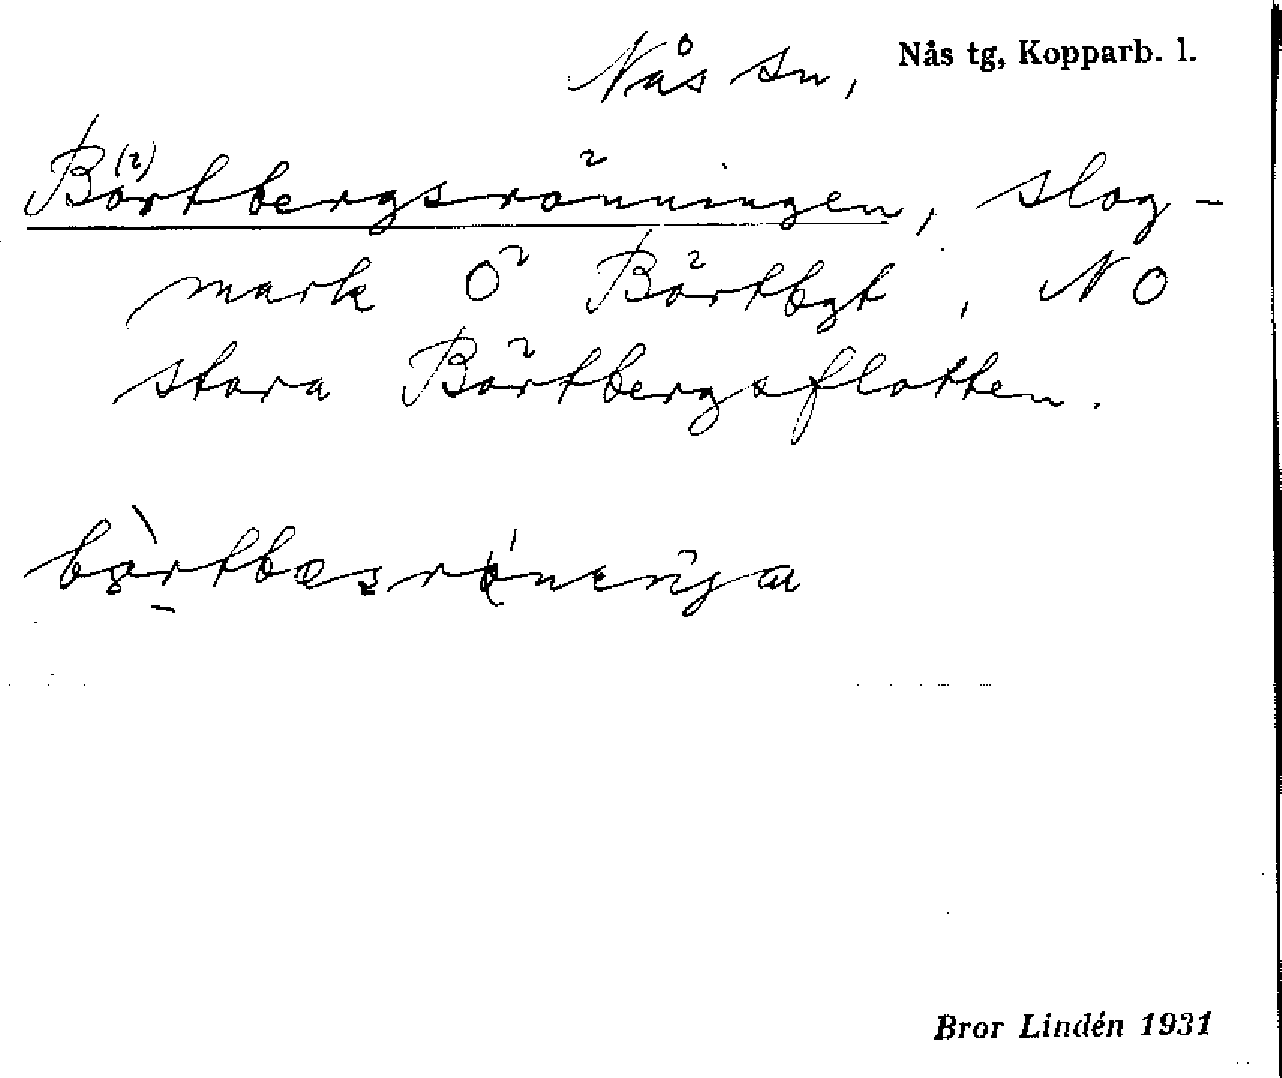 Nås sn, Nås tg, Kopparb. l.
Börtbergsrönningen, slog-
mark Ö Börtbgt, NO
stora Börtbergsflotten.
Bror Lindén 1931